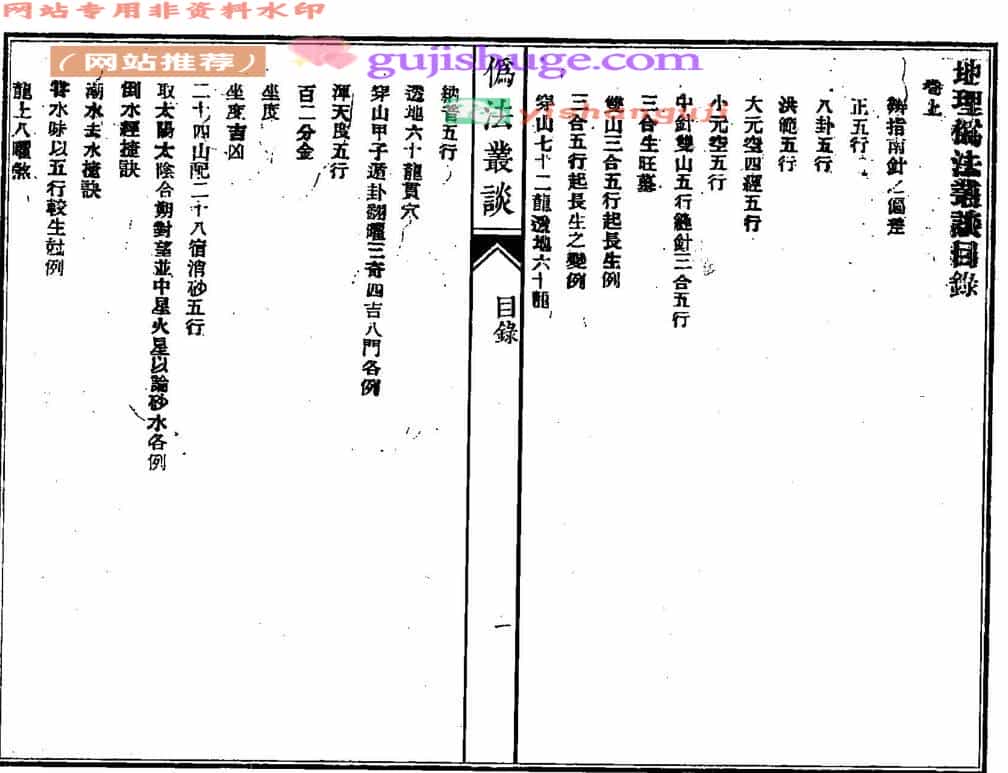 网站专用非资料水印
（网站推荐）
gujishuge.com
yishanguji
地理僞法叢談目錄
卷上
辨指南針之偏差
正五行
八卦五行
洪範五行
大元空四經五行
小元空五行
中針雙山五行縫針三合五行
三合生旺墓
雙山三合五行起長生例
三合五行起長生之變例
穿山七十二龍透地六十龍
僞法叢談
目錄
一
納音五行
透地六十龍貫穴
穿山甲子遁卦翻曜三奇四吉八門各例
渾天度五行
百二分金
坐度
坐度吉凶
二十四山配二十八宿消砂五行
取太陽太陰合朔對望並中星火星以論砂水各例
倒水經掩訣
潮水去水掩訣
水味以五行較生尅例
龍上八曜煞